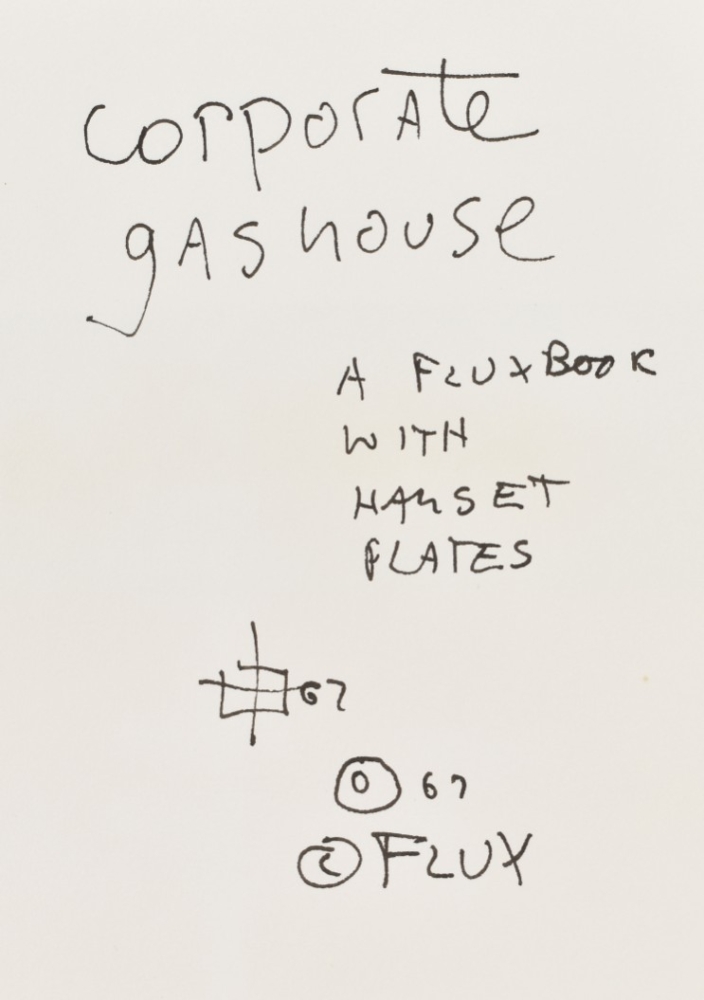 corporATe
gAS house
A FLUXBOOK
WITH
HANSET
PLATES
67
67
© FLUX